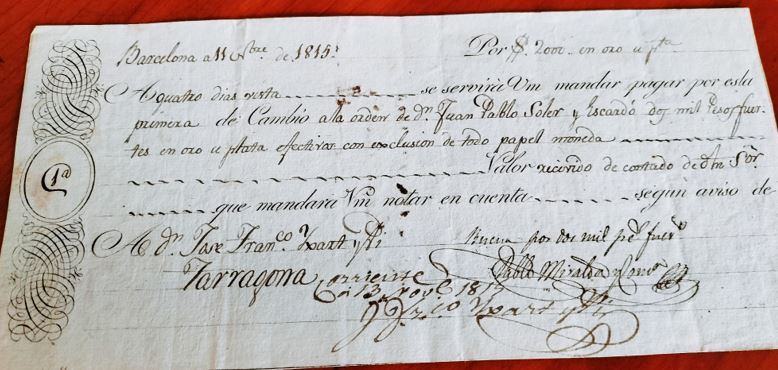 Barcelona a 11 Nbre. de 1815. Por $. 2000 en oro u pta
1a
A quatro dias vista se servirá Vm mandar pagar por esta
primera de Cambio a la orden de dn. Juan Pablo Soler y Escardó dos mil Pesos fuer-
tes en oro u plata efectivos con exclusion de todo papel moneda
Valor recivido de contado de dho Sor.
que mandará Vm notar en cuenta segun aviso de
A dn. Jose Franco. Yxart y Buena por dos mil ps. fuers.
Tarragona Pablo Miralda y
Corriente
13 Novre 1815
Yxart y